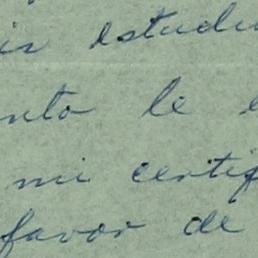 is estudi
nto le e
mi certif
favor de